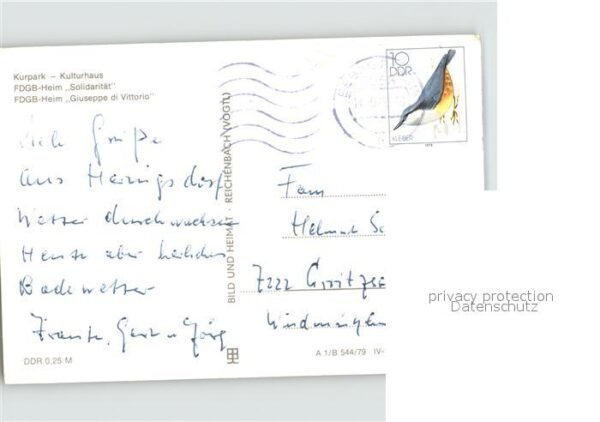 Kurpark – Kulturhaus
FDGB-Heim „Solidarität"
FDGB-Heim „Giuseppe di Vittorio"
10
DDR
KLEIBER
1979
Grüße
aus Heringsdorf
Wetter durchwachsen
Heute aber herrliches
Badewetter
Gert u Jörg
DDR 0,25 M
BILD UND HEIMAT · REICHENBACH (VOGTL)
Fam
Helmut
A 1/B 544/79 IV-
privacy protection
Datenschutz